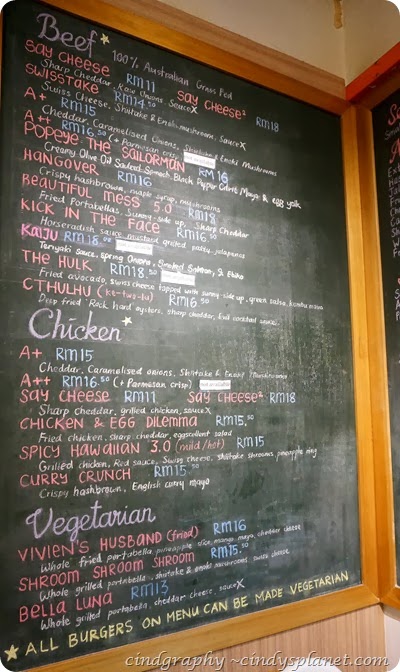 Beef* 100% Australian Grass Fed
SAY CHEESE RM11 SAY CHEESE² RM18
Sharp Cheddar, Raw Onions, SauceX
SWISSTAKE RM14.50
Swiss Cheese, Shiitake & Enoki mushroom, sauceX
A+ RM15
Cheddar, Caramelised Onions, Shiitake & Enoki Mushrooms
A++ RM16.50 (+ Parmesan crisp)
POPEYE THE SAILORMAN RM16
Creamy Olive Oil Sauteed Spinach, Black Pepper Mayo & egg yolk
HANGOVER RM16
Crispy hashbrown, maple syrup, mushrooms
BEAUTIFUL MESS 5.0 RM18
Fried Portabellas, Sunny-side up, Sharp Cheddar
KICK IN THE FACE RM16.50
Horseradish sauce, mustard grilled patty, jalapenos
KAIJU RM18.00
Teriyaki sauce, spring Onion, Smoked Salmon, & Ebiko
THE HULK RM18.50
Fried avocado, swiss cheese topped with sunny-side up, green salsa, mayo
CTHULHU (ke-two-lu) RM16.50
Deep fried 'Rock hard' oysters, sharp cheddar, cocktail sauce
Chicken*
A+ RM15
Cheddar, Caramelised onions, Shiitake & Enoki Mushrooms
A++ RM16.50 (+ Parmesan crisp)
SAY CHEESE RM11 SAY CHEESE² RM18
Sharp cheddar, grilled chicken, sauceX
CHICKEN & EGG DILEMMA RM15.50
Fried chicken, sharp cheddar, eggscellent salad
SPICY HAWAIIAN 3.0 (mild/hot) RM15
Grilled chicken, Red sauce, Swiss cheese, shiitake shrooms, pineapple ring
CURRY CRUNCH RM15.50
Crispy hashbrown, English curry mayo
Vegetarian
VIVIEN'S HUSBAND (fried) RM16
Whole fried portabella, pineapple slice, mango mayo, cheddar cheese
SHROOM SHROOM SHROOM RM15.50
Whole grilled portabella, shiitake & enoki mushrooms, swiss cheese
BELLA LUNA RM13
Whole grilled portabella, cheddar cheese, sauceX
* ALL BURGERS ON MENU CAN BE MADE VEGETARIAN
cindgraphy ~cindysplanet.com~